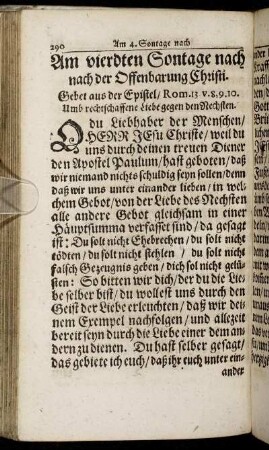 290 Am 4. Sontage nach
Am vierdten Sontage nach
nach der Offenbarung Christi.
Gebet aus der Epistel / Rom. 13 v. 8. 9. 10.
Umb rechtschaffene Liebe gegen den Nechsten.
O du Liebhaber der Menschen /
HERR JEsu Christe / weil du
uns durch deinen treuen Diener
den Apostel Paulum / hast geboten / daß
wir niemand nichts schuldig seyn sollen / denn
daß wir uns unter einander lieben / in wel-
chem Gebot / von der Liebe des Nechsten
alle andere Gebot gleichsam in einer
Häuptsumma verfasset sind / da gesagt
ist: Du solt nicht Ehebrechen / du solt nicht
tödten / du solt nicht stehlen / du solt nicht
falsch Gezeugnis geben / dich sol nicht gelü-
sten: So bitten wir dich / der du die Lie-
be selber bist / du wollest uns durch den
Geist der Liebe erleuchten / daß wir dei-
nem Exempel nachfolgen / und allezeit
bereit seyn durch die Liebe einer dem an-
dern zu dienen. Du hast selber gesagt /
das gebiete ich euch / daß ihr euch unter ein-
ander